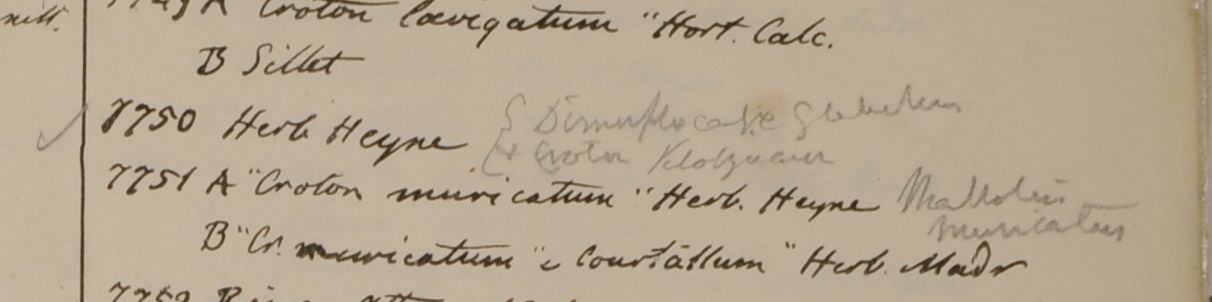 7749 A Croton lævigatum "Hort. Calc.
B Sillet
7750 Herb. Heyne { Dimorphocalyx glabellus
& Croton Klotzschianus
7751 A "Croton muricatum" Herb. Heyne Mallotus
muricatus
B "Cr. muricatum" e Courtallum" Herb. Madr